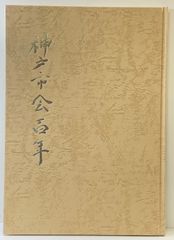 神戸市会百年